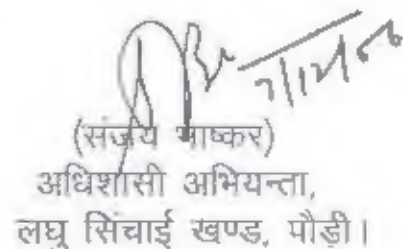 (संजय भाष्कर)
अधिशासी अभियन्ता,
लघु सिंचाई खण्ड, पौड़ी।